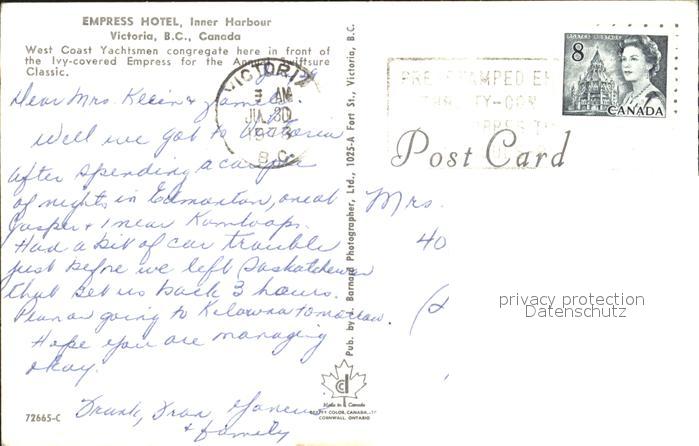 EMPRESS HOTEL, Inner Harbour
Victoria, B.C., Canada
West Coast Yachtsmen congregate here in front of
the Ivy-covered Empress for the Annual Swiftsure
Classic.
Dear Mrs. Klein &
Well we got to Victoria
after spending a couple
of nights in Edmonton, one at
Jasper & 1 near Kamloops.
Had a bit of car trouble
just before we left Saskatchewan
that set us back 3 hours.
Plan on going to Kelowna tomorrow.
Hope you are managing
okay.
Frank, Fran
& family
72665-C
VICTORIA
AM
JUL 30
1973
B.C.
Pub. by J. Barnard Photographer, Ltd., 1025-A Fort St., Victoria, B.C.
Made in Canada
COLOR, CANADA
CORNWALL, ONTARIO
Post Card
8
CANADA
Mrs.
40
privacy protection
Datenschutz